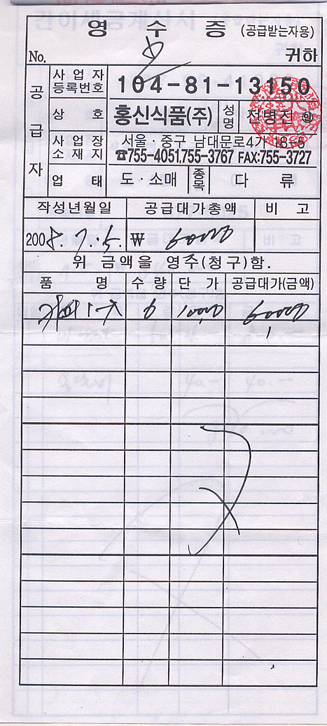 영 수 증 (공급받는자용)
No. 귀하
공급자
사업자등록번호 104-81-13150
상호 흥신식품(주) 성명 전병진 ㊞
사업장소재지 서울·중구 남대문로4가 18-8
☎755-4051.755-3767 FAX:755-3727
업태 도·소매 종목 다류
작성년월일 공급대가총액 비고
2008.7.5. ₩ 60000
위 금액을 영수(청구)함.
품명 수량 단가 공급대가(금액)
6 10000 60000